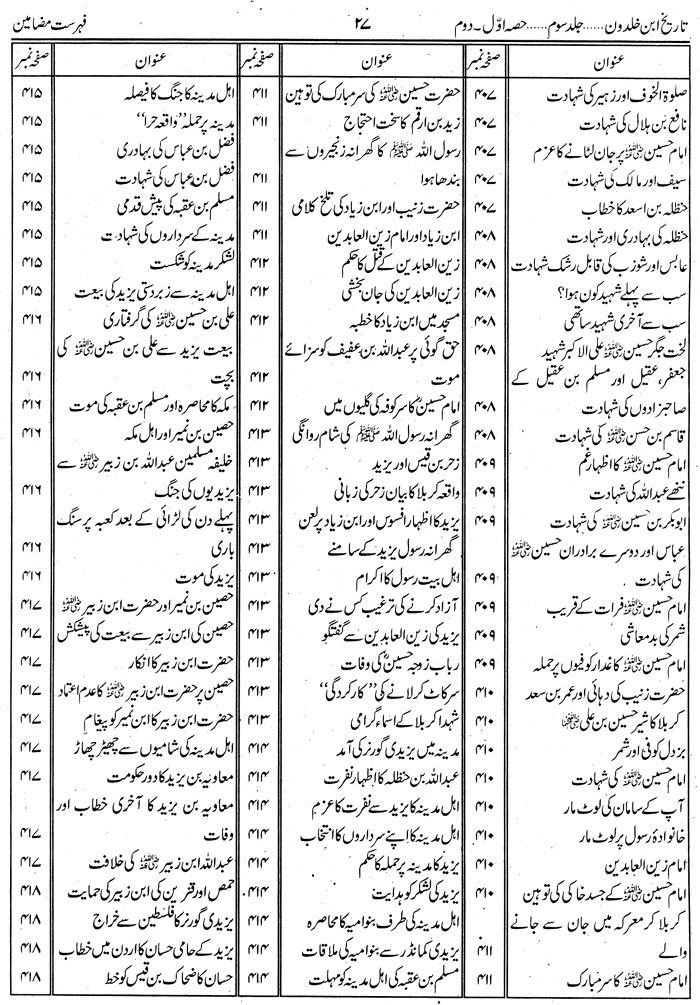 تاریخ ابن خلدون ...... جلد سوم ...... حصہ اوّل ۔ دوم
۲۷
فہرست مضامین
عنوان صفحہ نمبر
صلوٰۃ الخوف اور زہیر کی شہادت ۴۰۷
نافع بن ہلال کی شہادت ۴۰۷
امام حسین ؓ پر جان لٹانے کا عزم ۴۰۷
سیف اور مالک کی شہادت ۴۰۷
حنظلہ بن اسعد کا خطاب ۴۰۷
حنظلہ کی بہادری اور شہادت ۴۰۸
عابس اور شوزب کی قابل رشک شہادت ۴۰۸
سب سے پہلے شہید کون ہوا؟ ۴۰۸
سب سے آخری شہید ساتھی ۴۰۸
لخت جگر حسین ؓ علی الاکبر شہید ۴۰۸
جعفر، عقیل اور مسلم بن عقیل کے
صاحبزادوں کی شہادت ۴۰۸
قاسم بن حسن ؓ کی شہادت ۴۰۸
امام حسین ؓ کا اظہار غم ۴۰۹
ننھے عبداللہ کی شہادت ۴۰۹
ابوبکر بن حسین ؓ کی شہادت ۴۰۹
عباس اور دوسرے برادران حسین ؓ
کی شہادت ۴۰۹
امام حسین ؓ فرات کے قریب ۴۰۹
شمر کی بدمعاشی ۴۰۹
امام حسین ؓ کا غدار کوفیوں پر حملہ ۴۰۹
حضرت زنیب کی دہائی اور عمر بن سعد ۴۱۰
کربلا کا شیر حسین بن علی ؓ ۴۱۰
بزدل کوفی اور شمر ۴۱۰
امام حسین ؓ کی شہادت ۴۱۰
آپ کے سامان کی لوٹ مار ۴۱۰
خانوادۂ رسول پر لوٹ مار ۴۱۰
امام زین العابدین ۴۱۰
امام حسین ؓ کے جسد خاکی کی توہین ۴۱۰
کربلا کر معرکہ میں جان سے جانے
والے ۴۱۱
امام حسین ؓ کا سر مبارک ۴۱۱
عنوان صفحہ نمبر
حضرت حسین ؓ کی سر مبارک کی توہین ۴۱۱
زید بن ارقم کا سخت احتجاج ۴۱۱
رسول اللہ ﷺ کا گھرانہ زنجیروں سے
بندھا ہوا ۴۱۱
حضرت زنیب اور ابن زیاد کی تلخ کلامی ۴۱۱
ابن زیاد اور امام زین العابدین ۴۱۱
زین العابدین کے قتل کا حکم ۴۱۲
زین العابدین کی جان بخشی ۴۱۲
مسجد میں ابن زیاد کا خطبہ ۴۱۲
حق گوئی پر عبداللہ بن عفیف کو سزائے
موت ۴۱۲
امام حسین ؓ کا سر کوفہ کی گلیوں میں ۴۱۲
گھرانہ رسول اللہ ﷺ کی شام روانگی ۴۱۳
زحر بن قیس اور یزید ۴۱۳
واقعہ کربلا کا بیان زحر کی زبانی ۴۱۳
یزید کا اظہار افسوس اور ابن زیاد پر لعن ۴۱۳
گھرانہ رسول یزید کے سامنے ۴۱۳
اہل بیت رسول کا اکرام ۴۱۳
آزاد کرنے کی ترغیب کس نے دی ۴۱۳
یزید کی زین العابدین سے گفتگو ۴۱۳
رباب زوجہ حسین ؓ کی وفات ۴۱۳
سر کاٹ کر لانے کی ”کارکردگی“ ۴۱۳
شہدا کربلا کے اسماء گرامی ۴۱۳
مدینہ میں یزیدی گورنر کی آمد ۴۱۴
عبداللہ بن حنظلہ کا اظہار نفرت ۴۱۴
اہل مدینہ کا یزید سے نفرت کا عزم ۴۱۴
اہل مدینہ کا اپنے سرداروں کا انتخاب ۴۱۴
یزید کا مدینہ پر حملہ کا حکم ۴۱۴
یزید کی لشکر کو ہدایت ۴۱۴
اہل مدینہ کی طرف بنوامیہ کا محاصرہ ۴۱۴
یزیدی کمانڈر سے بنوامیہ کی ملاقات ۴۱۴
مسلم بن عقبہ کی اہل مدینہ کو مہلت ۴۱۴
عنوان صفحہ نمبر
اہل مدینہ کا جنگ کا فیصلہ ۴۱۵
مدینہ پر حملہ ”واقعہ حرا“ ۴۱۵
فضل بن عباس کی بہادری ۴۱۵
فضل بن عباس کی شہادت ۴۱۵
مسلم بن عقبہ کی پیش قدمی ۴۱۵
مدینہ کے سرداروں کی شہادت ۴۱۵
لشکر مدینہ کو شکست ۴۱۵
اہل مدینہ سے زبردستی یزید کی بیعت ۴۱۵
علی بن حسین ؓ کی گرفتاری ۴۱۶
بیعت یزید سے علی بن حسین ؓ کی
بچت ۴۱۶
مکہ کا محاصرہ اور مسلم بن عقبہ کی موت ۴۱۶
حصین بن نمیر اور اہل مکہ ۴۱۶
خلیفہ مسلمین عبداللہ بن زبیر ؓ سے
یزیدیوں کی جنگ ۴۱۶
پہلے دن کی لڑائی کے بعد کعبہ پر سنگ
باری ۴۱۶
یزید کی موت ۴۱۶
حصین بن نمیر اور حضرت ابن زبیر ؓ ۴۱۷
حصین کی ابن زبیر سے بیعت کی پیشکش ۴۱۷
حضرت ابن زبیر کا انکار ۴۱۷
حصین پر حضرت ابن زبیر ؓ کا عدم اعتماد ۴۱۷
حضرت ابن زبیر کا ابن نمیر کو پیغام ۴۱۷
اہل مدینہ کی شامیوں سے چھیڑ چھاڑ ۴۱۷
معاویہ بن یزید کا دور حکومت ۴۱۷
معاویہ بن یزید کا آخری خطاب اور
وفات ۴۱۷
عبداللہ ابن زبیر ؓ کی خلافت ۴۱۷
حمص اور قنسرین کی ابن زبیر کی حمایت ۴۱۸
یزیدی گورنر کا فلسطین سے خراج ۴۱۸
یزید کے حامی حسان کا اردن میں خطاب ۴۱۸
حسان کا ضحاک بن قیس کو خط ۴۱۸